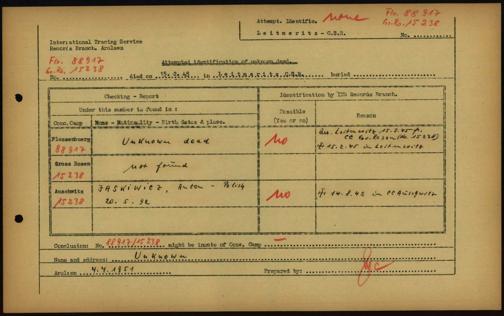 Attempt. Identific. none Flo. 88917
Gr.Ro. 15238
Leitmeritz-C.S.R. No.
International Tracing Service
Records Branch, Arolsen
Flo. 88917
Gr.Ro. 15238
Attempted identification of unknown dead.
No. died on 15.2.45 in Leitmeritz C.S.R. buried
Checking - Report
Identification by ITS Records Branch.
Under this number is found in:
Possible
(Yes or no)
Reason
Conc.Camp Name - Nationality - Birth dates & place.
Flossenburg
88917
Unknown dead
no
Leitmeritz
CC
† 15.2.45 in Leitmeritz
Gross Rosen
15238
not found
Auschwitz
15238
JASKIWICZ, Anton -
20. 5. 92
no
† 14.8.42 in CC Auschwitz
Conclusion: No. 88917/15238 might be inmate of Conc. Camp —
Name and address: Unknown
Arolsen 4.4.1951 Prepared by: